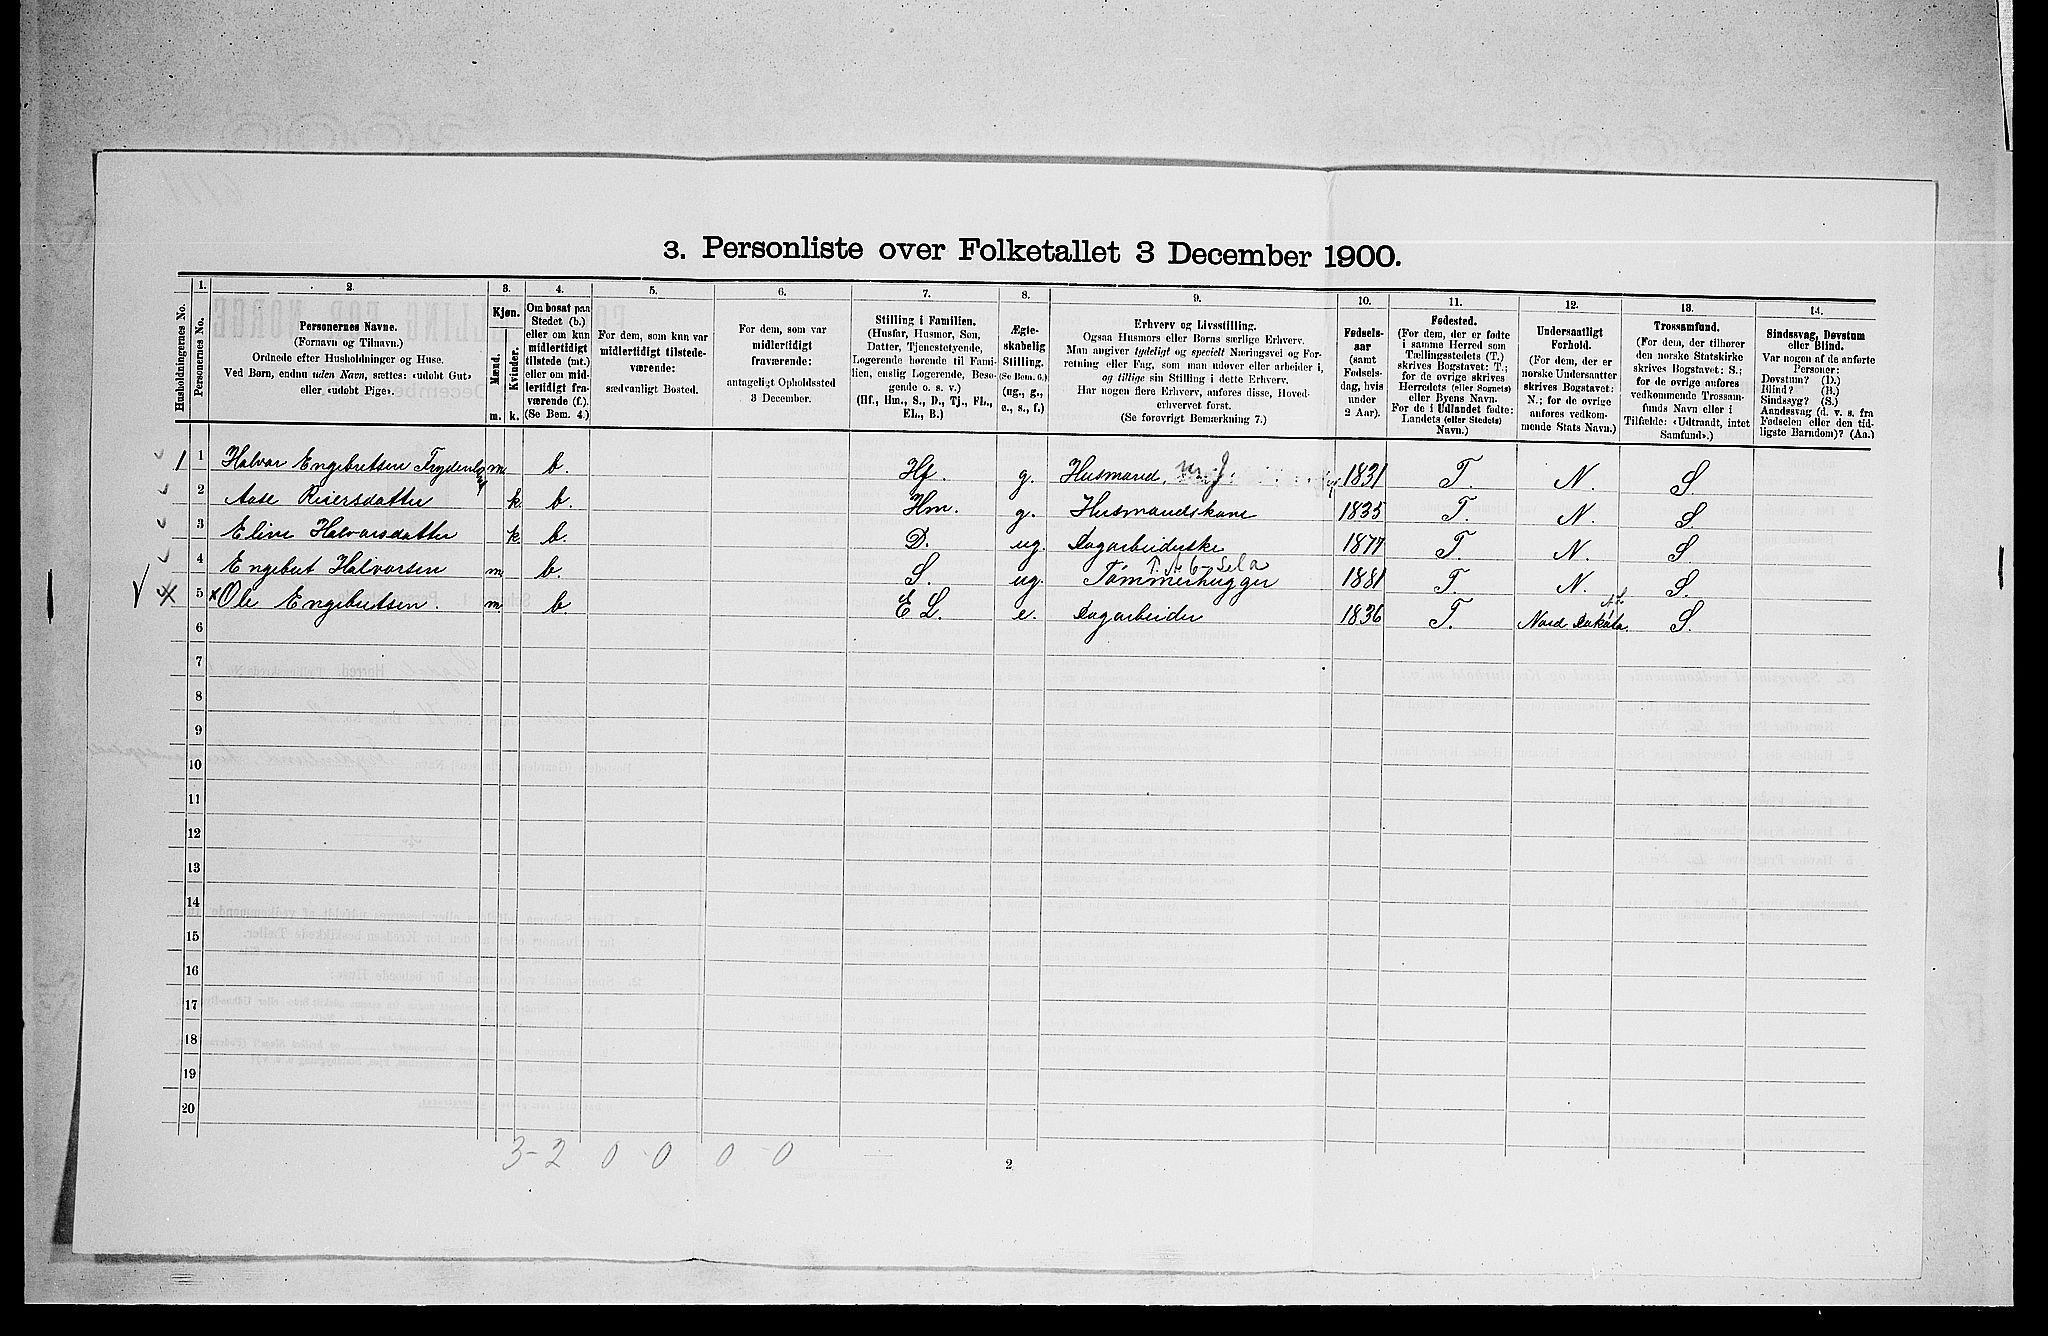 3. Personliste over Folketallet 3 December 1900.
Husholdningernes No.
1.
Personernes No.
2.
Personernes Navne.
(Fornavn og Tilnavn.)
Ordnede efter Husholdninger og Huse.
Ved Børn, endnu uden Navn, sættes: «udøbt Gut»
eller, «udøbt Pige».
3.
Kjøn.
Mænd.
Kvinder.
m.
k.
4.
Om bosat paa
Stedet (b.)
eller om kun
midlertidigt
tilstede (mt.)
eller om mid-
lertidigt fra-
værende (f.).
(Se Bem. 4.)
5.
For dem, som kun var
midlertidigt tilstede-
værende:
sædvanligt Bosted.
6.
For dem, som var
midlertidigt
fraværende:
antageligt Opholdssted
3 December.
7.
Stilling i Familien.
(Husfar, Husmor, Søn,
Datter, Tjenestetyende,
Logerende hørende til Fami-
lien, enslig Logerende, Besø-
gende o. s. v.)
(Hf., Hm., S., D., Tj., FL.,
EL., B.)
8.
Ægte-
skabelig
Stilling.
(Se Bem. 6.)
(ug., g.,
e., s., f.)
9.
Erhverv og Livsstilling.
Ogsaa Husmors eller Børns særlige Erhverv.
Man angiver tydeligt og specielt Næringsvei og For-
retning eller Fag, som man udøver eller arbeider i,
og tillige sin Stilling i dette Erhverv.
Har nogen flere Erhverv, anføres disse, Hoved-
erhvervet først.
(Se forøvrigt Bemærkning 7.)
10.
Fødsels-
aar
(samt
Fødsels-
dag, hvis
under
2 Aar).
11.
Fødested.
(For dem, der er fødte
i samme Herred som
Tællingsstedets (T.)
skrives Bogstavet: T.;
for de øvrige skrives
Herredets (eller Sognets)
eller Byens Navn.
For de i Udlandet fødte:
Landets (eller Stedets)
Navn.)
12.
Undersaatligt
Forhold.
(For dem, der er
norske Undersaatter
skrives Bogstavet:
N.; for de øvrige
anføres vedkom-
mende Stats Navn.)
13.
Trossamfund.
(For dem, der tilhører
den norske Statskirke
skrives Bogstavet: S.;
for de øvrige anføres
vedkommende Trossam-
funds Navn eller i
Tilfælde: «Udtraadt, intet
Samfund».)
14.
Sindssvag, Døvstum
eller Blind.
Var nogen af de anførte
Personer:
Døvstum? (D.)
Blind? (B.)
Sindssyg? (S.)
Aandssvag (d. v. s. fra
Fødselen eller den tid-
ligste Barndom)? (Aa.)
1 1 Halvor Engebretsen Frydenlund m. b. Hf. g. Husmand, 1831 T. N. S.
2 Aase Reiersdatter k. b. Hm. g. Husmandskone 1835 T. N. S.
3 Eline Halvorsdatter k b. D. ug. Dagarbeiderske 1877 T. N. S.
4 Engebret Halvorsen m b. S. ug. Tømmerhugger 1881 T. N. S.
x 5 x Ole Engebretsen. m. b. E L. e. Dagarbeider 1836 T. Nord Dakota. S.
6
7
8
9
10
11
12
13
14
15
16
17
18
19
20
3-2 0-0 0-0
2